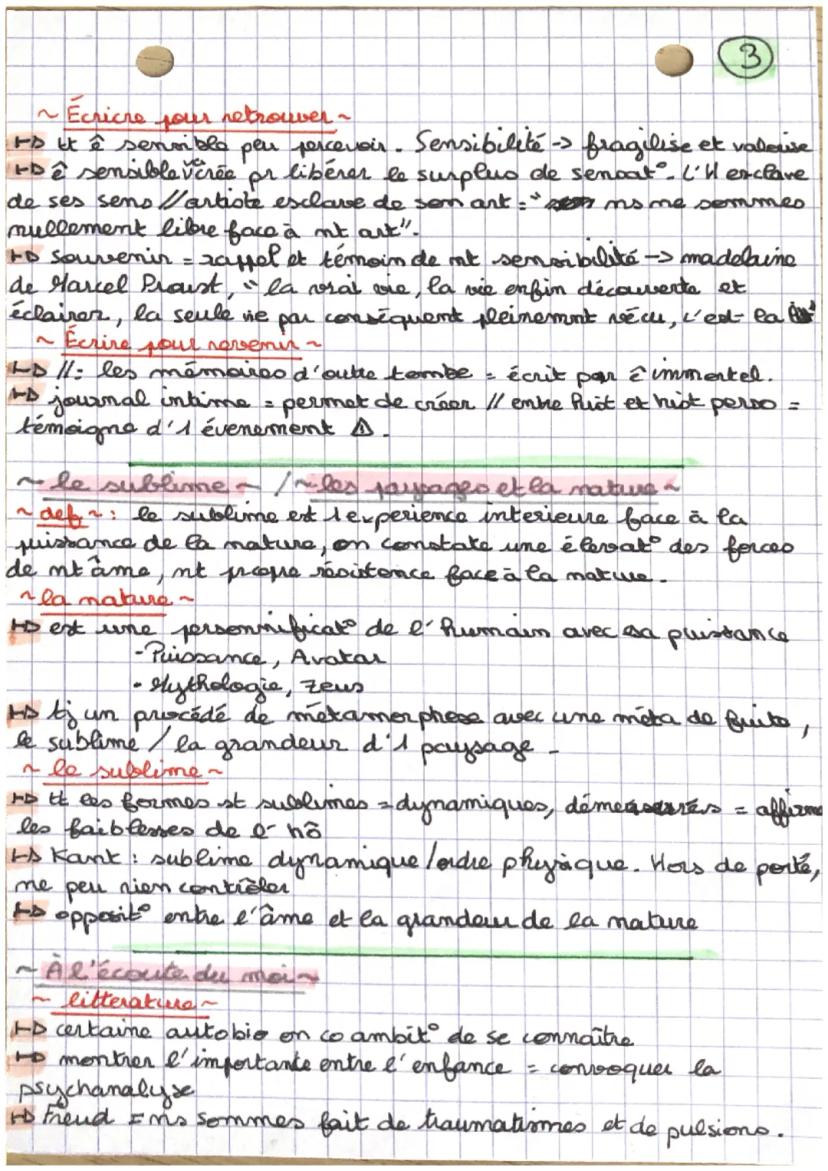 3
~ Écrire pour retrouver ~
↦ tt ê sensible peu percevoir. Sensibilité → fragilise et valorise
↦ ê sensible va crée pr libérer le surplus de sensat°. L'H esclave
de ses sens // artiste esclave de son art = " ns ne sommes
nullement libre face à nt art".
↦ souvenir = rappel et témoin de nt sensibilité → madelaine
de Marcel Proust, " la vrai vie, la vie enfin découverte et
éclairer, la seule vie par conséquent pleinemnt vécu, c'est la
~ Écrire pour revenir ~
↦ //: les mémoires d'outre tombe = écrit pour ê immortel.
↦ journal intime = permet de créer // entre hist et hist perso =
témoigne d'1 évenement ⚠.
~ le sublime ~ / ~ les paysages et la nature ~
~ def ~ : le sublime est 1 experience interieure face à la
puissance de la nature, on constate une élevat° des forces
de nt âme, nt propre résistence face à la nature.
~ la nature ~
↦ est une personnificat° de l'humain avec sa puissance
- Puissance, Avatar
- Mythologie, Zeus
↦ tj un procédé de métamorphose avec une méta de fruits,
le sublime / la grandeur d'1 paysage -
~ le sublime ~
↦ tt les formes st sublimes = dynamiques, démesurés = affirme
les faiblesses de l'hô
↦ Kant : sublime dynamique / ordre physique. Hors de porté,
ne peu rien contrôler
↦ opposit° entre l'âme et la grandeur de la nature
~ À l'écoute du moi ~
~ litterature ~
↦ certaine autobio on co ambit° de se connaître
↦ montrer l'importante entre l'enfance = convoquer la
psychanalyse
↦ Freud = ns sommes fait de traumatismes et de pulsions.